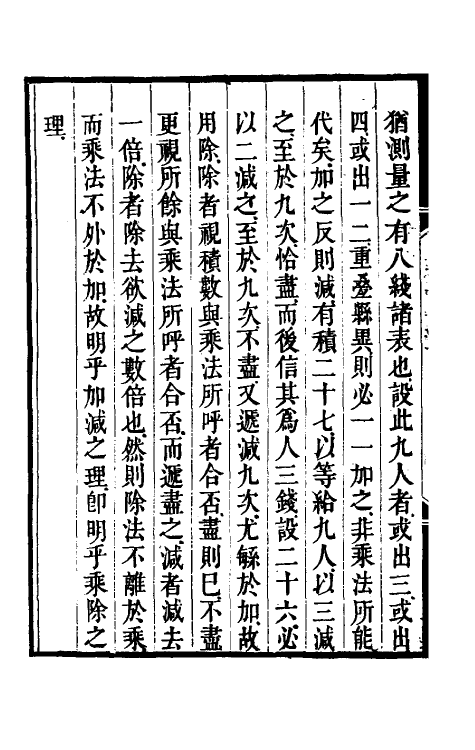 猶測量之有八綫諸表也設此九人者或出三或出
四或出一二重叠縣異則必一一加之非乘法所能
代矣加之反則減有積二十七以等給九人以三減
之至於九次恰盡而後信其爲人三錢設二十六必
以二減之至於九次不盡又遞減九次尤緐於加故
用除除者視積數與乘法所呼者合否盡則巳不盡
更視所餘與乘法所呼者合否而遞盡之減者減去
一倍除者除去欲減之數倍也然則除法不離於乘
而乘法不外於加故明乎加減之理卽明乎乘除之
理